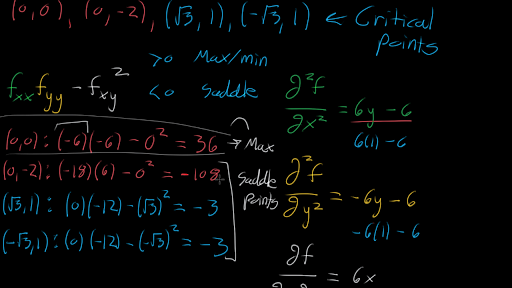 (0,0), (0,-2), (√3, 1), (-√3, 1) ← Critical points
>0 Max/min
f_xx f_yy - f_xy² <0 Saddle
(0,0): (-6)(-6) - 0² = 36 → Max
(0,-2): (-18)(6) - 0² = -108
(√3,1): (0)(-12) - (√3)² = -3
(-√3,1): (0)(-12) - (-√3)² = -3
Saddle points
∂²f/∂x² = 6y - 6
6(1) - 6
∂²f/∂y² = -6y - 6
-6(1) - 6
∂f = 6x